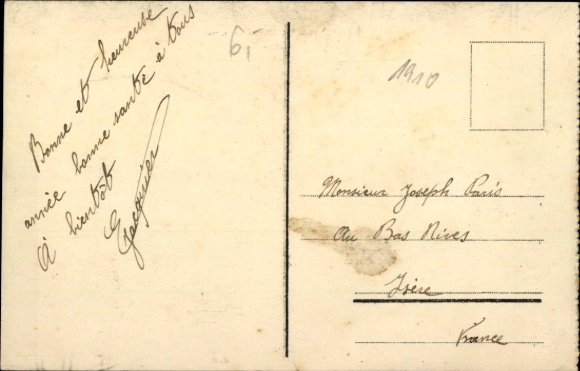 Bonne et heureuse
année bonne santé à tous
À bientôt
6,
1910
Monsieur Joseph Paris
Au Bas Nives
Isère
France